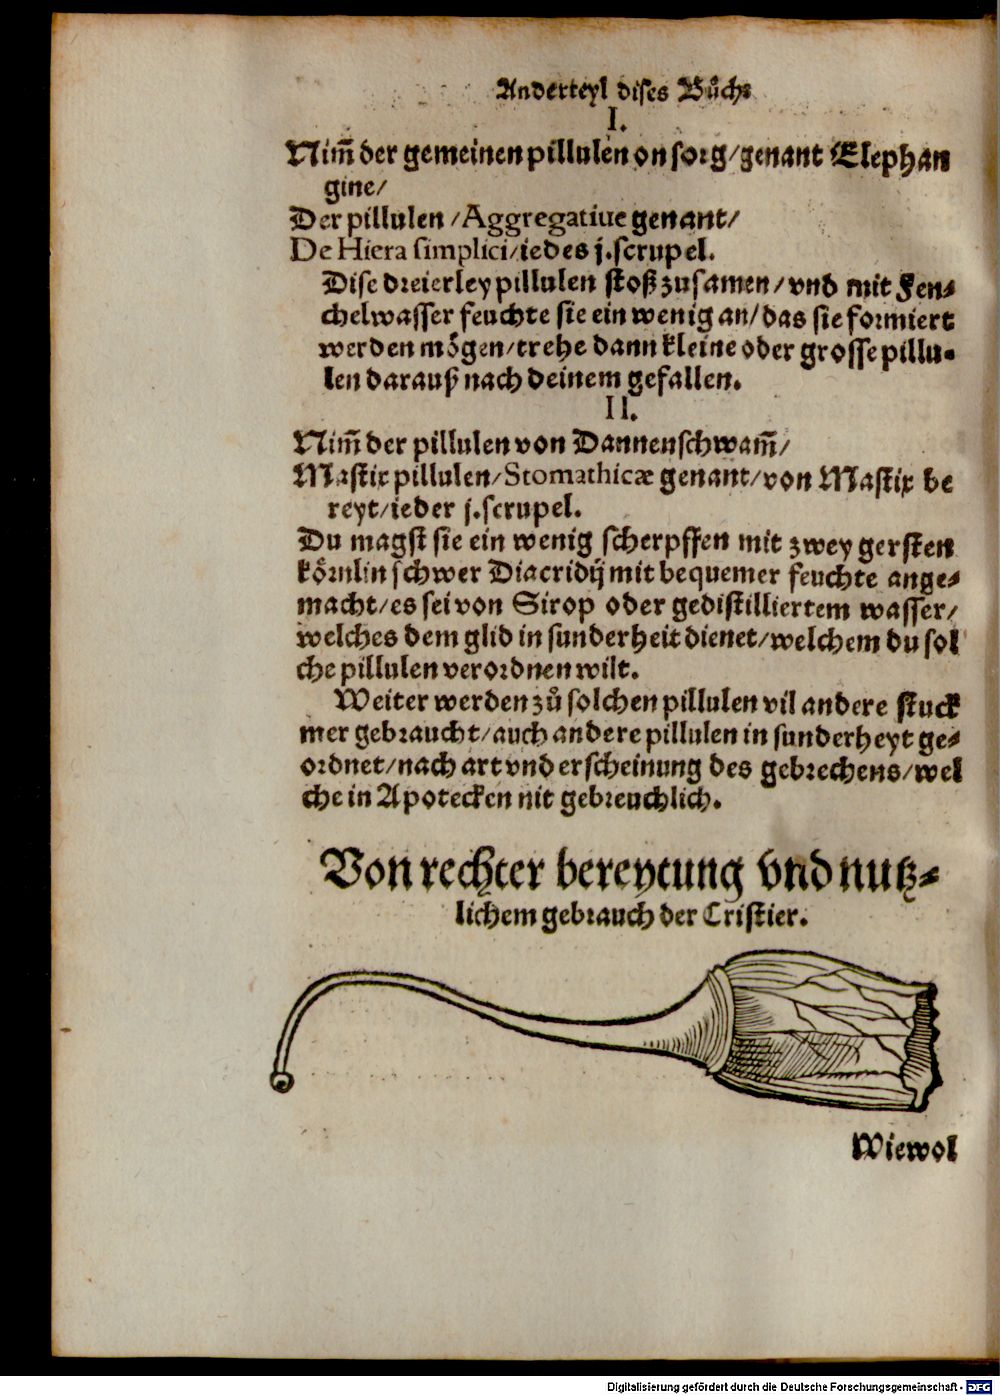 Anderteyl dises Bůchs
I.
Nim̃ der gemeinen pillulen on sorg/genant Elephan
gine/
Der pillulen/Aggregatiue genant/
De Hiera simplici/iedes j.scrupel.
Dise dreierley pillulen stoß zusamen/vnd mit Fen⸗
chelwasser feuchte sie ein wenig an/das sie formiert
werden mögen/trehe dann kleine oder grosse pillu⸗
len darauß nach deinem gefallen.
II.
Nim̃ der pillulen von Dannenschwam̃/
Mastix pillulen/Stomathicæ genant/von Mastix be
reyt/ieder j.scrupel.
Du magst sie ein wenig scherpffen mit zwey gersten
körnlin schwer Diacridij mit bequemer feuchte ange⸗
macht/es sei von Sirop oder gedistilliertem wasser/
welches dem glid in sunderheit dienet/welchem du sol
che pillulen verordnen wilt.
Weiter werden zů solchen pillulen vil andere stuck
mer gebraucht/auch andere pillulen in sunderheyt ge⸗
ordnet/nach art vnd erscheinung des gebrechens/wel
che in Apotecken nit gebreuchlich.
Von rechter bereytung vnd nutz⸗
lichem gebrauch der Cristier.
Wiewol
Digitalisierung gefördert durch die Deutsche Forschungsgemeinschaft - DFG